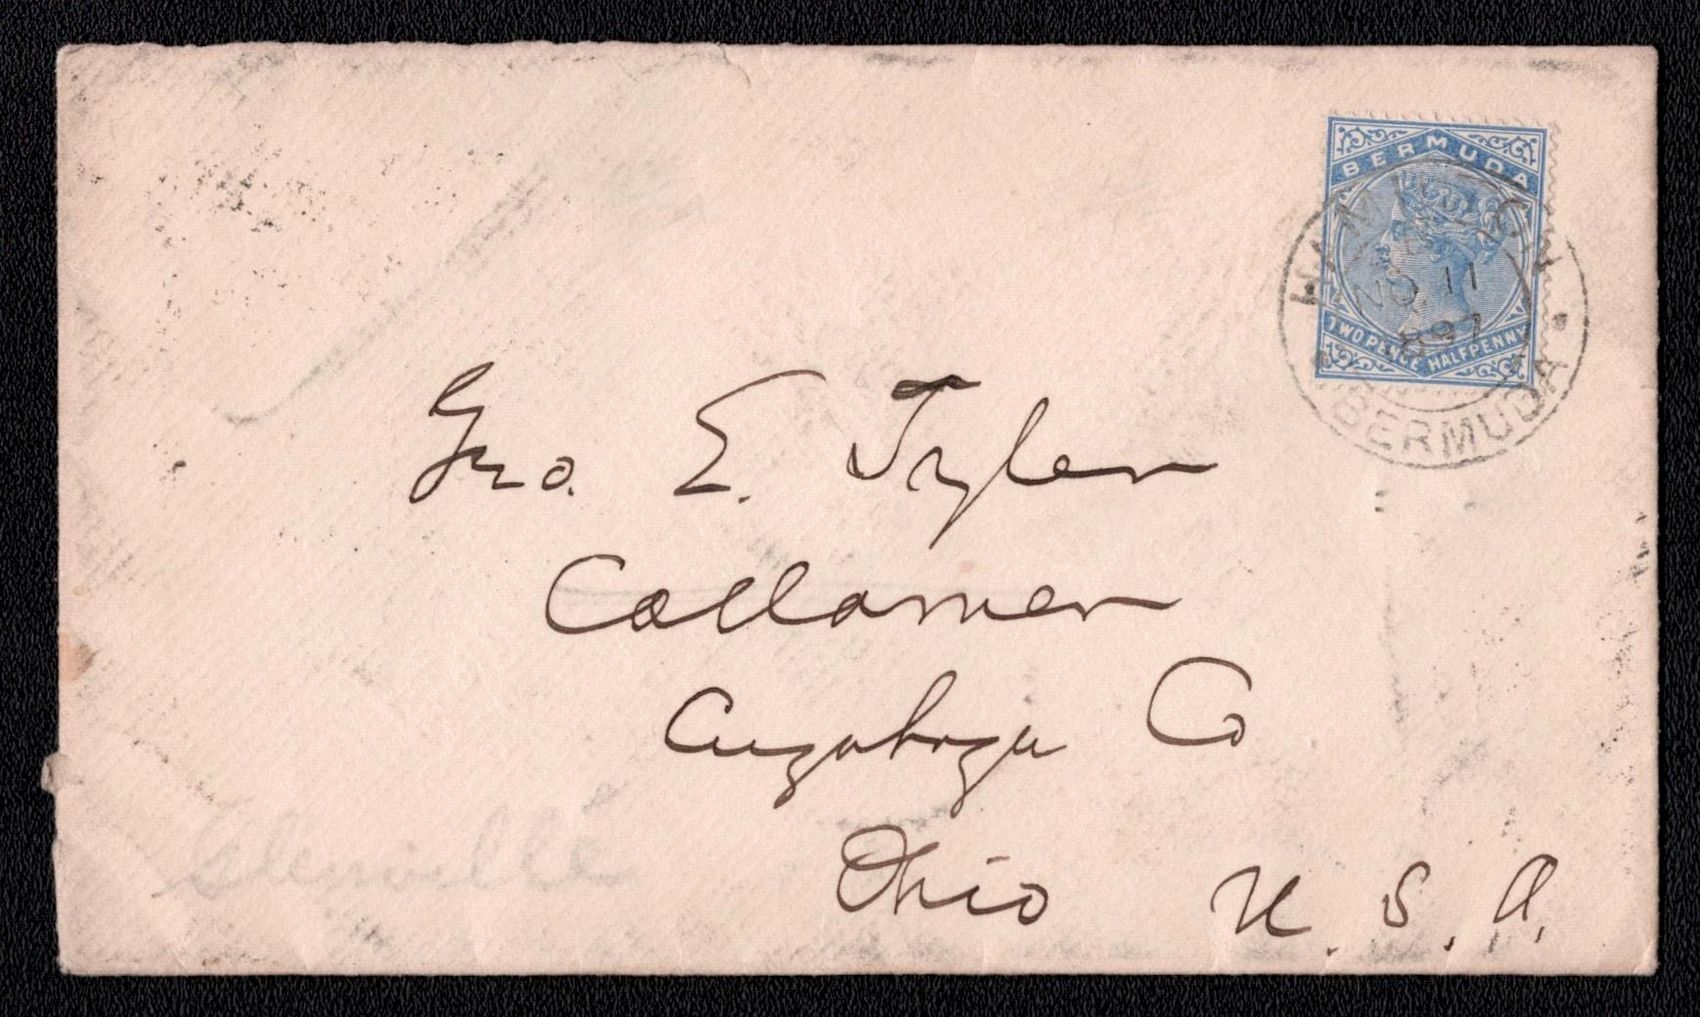 BERMUDA
TWO PENCE HALFPENNY
HAMILTON
NO 11
1897
BERMUDA
Geo. E. Tyler
Collamer
Cuyahoga Co
Ohio U. S. A.
Glenville